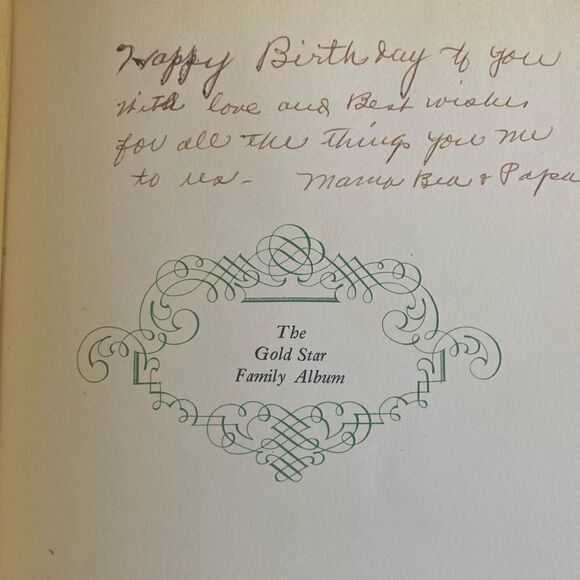 Happy Birthday to you
with love and Best wishes
for all the things you me
to us- Mama Bea & Papa
The
Gold Star
Family Album